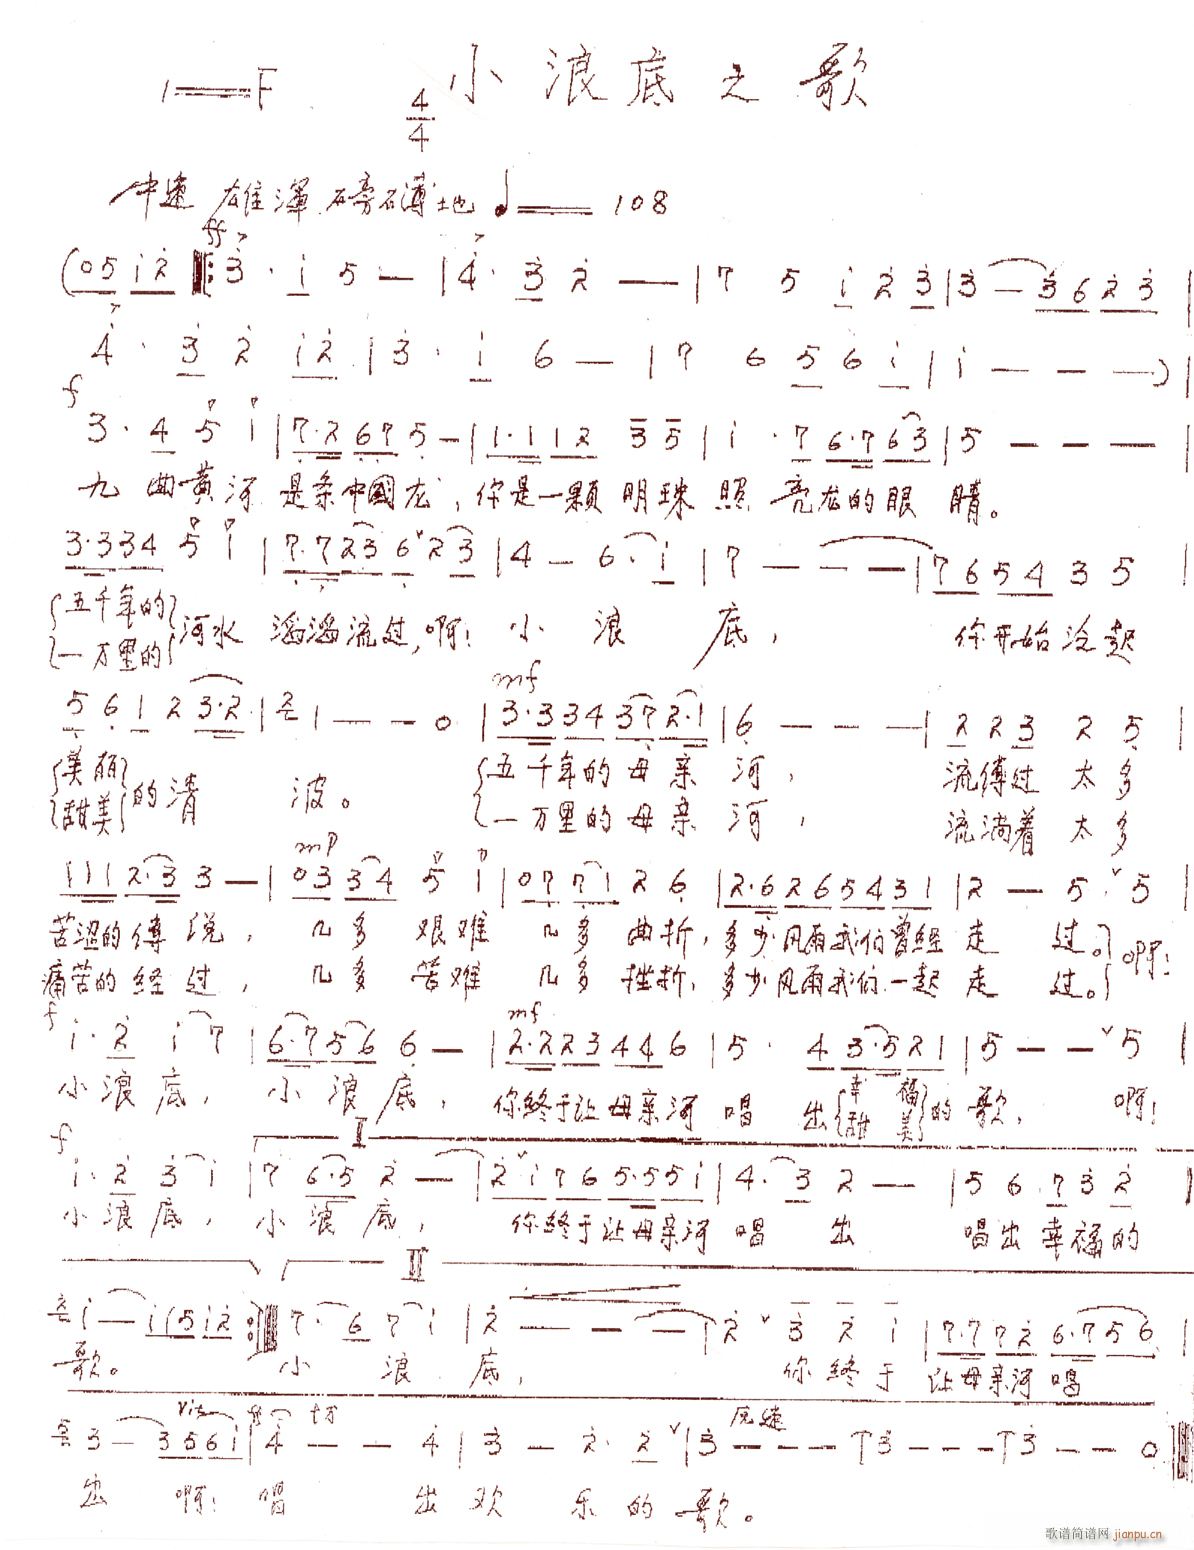 小浪底之歌
1=F 4/4
中速 雄渾磅礴地 ♩=108
ff
(05 i2 ‖: 3· i 5 — | 4· 3 2 — | 7 5 i 2 3 | 3 — 3 6 2 3 |
4· 3 2 i2 | 3· i 6 — | 7 6 5 6 i | i — — —) |
f
3· 4 5 i | 7·2 67 5 — | 1·1 12 3 5 | i· 7 6·7 63 | 5 — — — |
九曲黄河是条中國龙,你是一颗明珠照亮龙的眼睛。
3·3 34 5 i | 7·7 23 6 23 | 4 — 6· i | 7 — — — | 76 54 3 5 |
五千年的
一万里的
河水滔滔流过,啊!小浪底,你开始泛起
5 6 1 2 3·2 | 2 1 — — 0 | 3·3 34 37 2·1 | 6 — — — | 2 2 3 2 5 |
mf
美丽
甜美
的清波。
五千年的母亲河,流傳过太多
一万里的母亲河,流淌着太多
mp
111 2·3 3 — | 03 34 5 i | 07 71 2 6 | 2·6 26 54 31 | 2 — 5 5 |
苦涩的傳说,几多艰难几多曲折,多少风雨我们曾经走过。
痛苦的经过,几多苦难几多挫折,多少风雨我们一起走过。
啊!
f mf
i· 2 i 7 | 6·7 56 6 — | 2·2 23 44 6 | 5· 4 3·5 21 | 5 — — 5 |
小浪底,小浪底,你終于让母亲河唱出
幸福
甜美
的歌,啊!
f I
i· 2 3 i | 7 6·5 2 — | 2 i 76 5·5 5i | 4· 3 2 — | 5 6 7 3 2 |
小浪底,小浪底,你終于让母亲河唱出唱出幸福的
II
i — i (5 i2 :‖ 7· 6 7 i | 2 — — — | 2 3 2 i | 7·7 72 6·7 56 |
歌。小浪底,你終于让母亲河唱
3 — 3 5 6 i | 4 — — 4 | 3 — 2· 2 | 3 — — — | 3 — — — | 3 — — 0 ‖
原速
出啊!唱出欢乐的歌。
歌谱简谱网 jianpu.cn